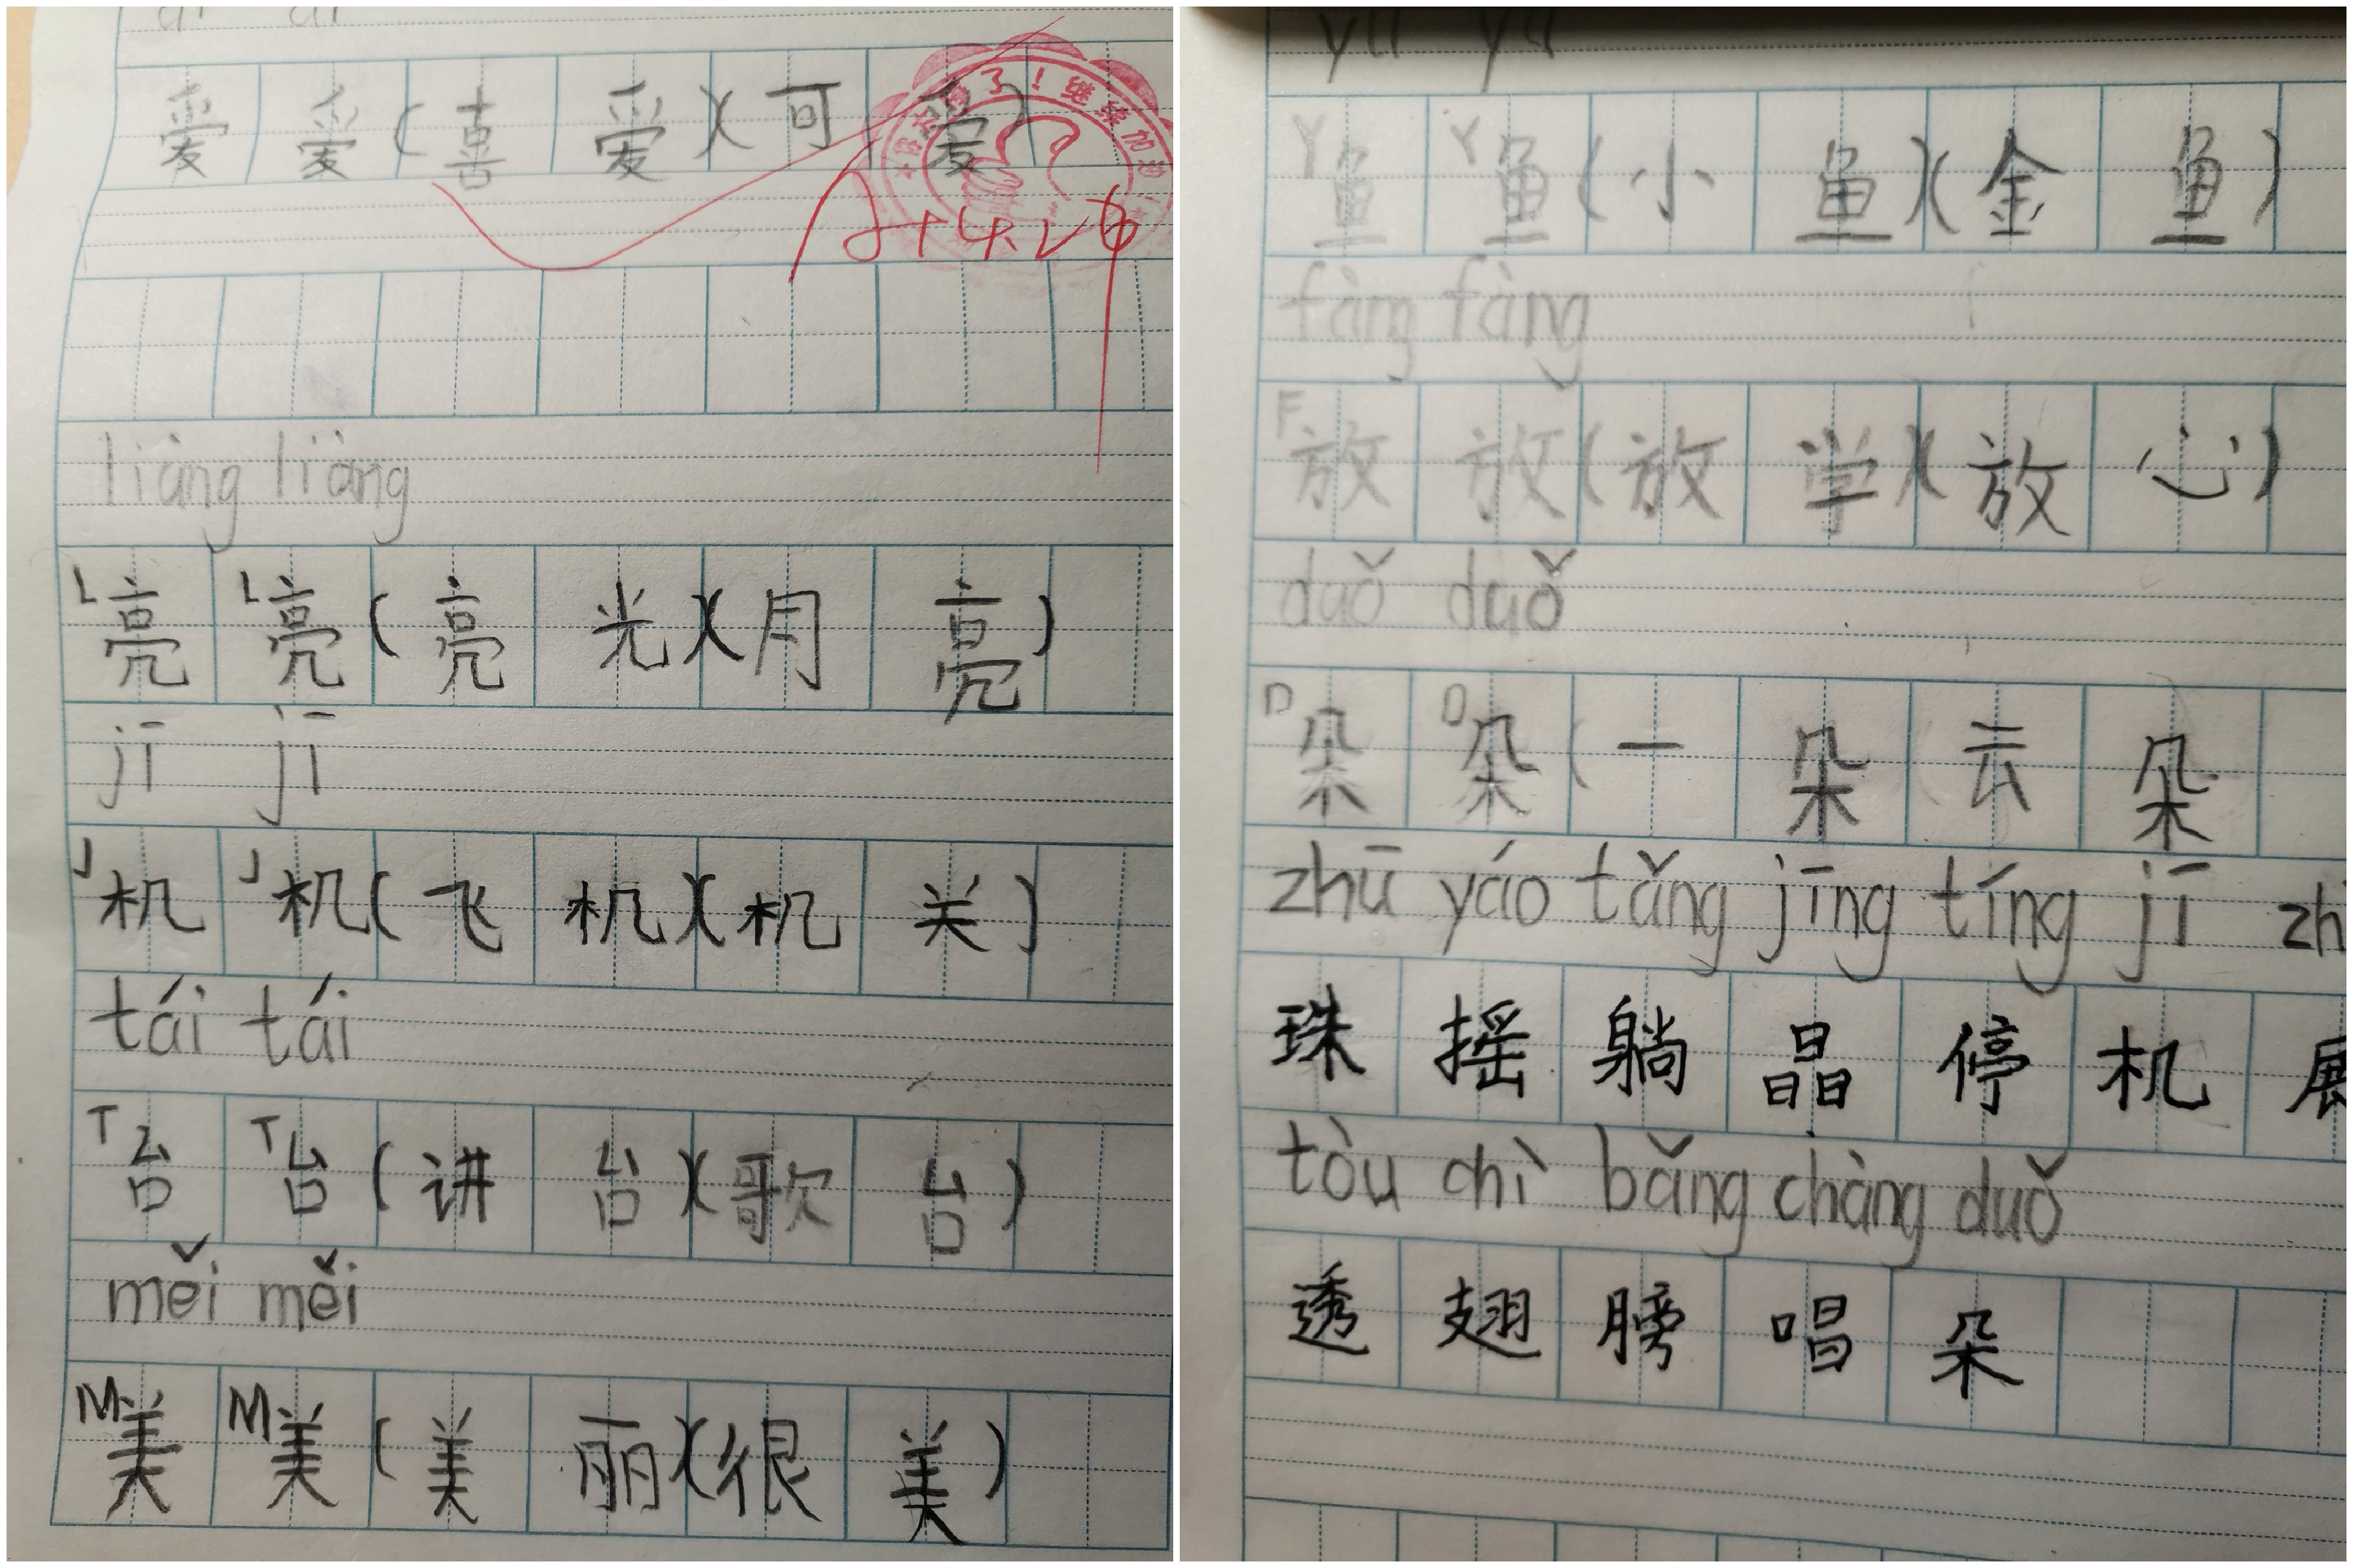 爱 爱 (喜 爱)(可 爱)
A+ 4.26
liàng liàng
L亮 L亮 (亮 光)(月 亮)
jī jī
J机 J机 (飞 机)(机 关)
tái tái
T台 T台 (讲 台)(歌 台)
měi měi
M美 M美 (美 丽)(很 美)
Y鱼 Y鱼 (小 鱼)(金 鱼)
fàng fàng
F放 放 (放 学)(放 心)
duǒ duǒ
D朵 D朵 (一 朵 云 朵
zhū yáo tǎng jīng tíng jī zh
珠 摇 躺 晶 停 机 展
tòu chì bǎng chàng duǒ
透 翅 膀 唱 朵